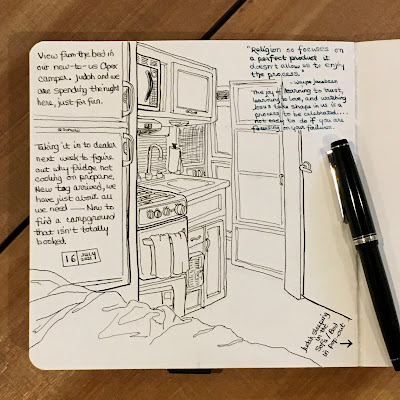 View from the bed in
our new-to-us Apex
camper. Judah and we
are spending the night
here, just for fun.
Taking it in to dealer
next week to figure
out why fridge not
cooling on propane.
New tag arrived, we
have just about all
we need — Now to
find a campground
that isn't totally
booked.
16 JULY
2021
"Religion so focuses on
a perfect product it
doesn't allow us to enjoy
the process."
- Wayne Jacobsen
The joy of learning to trust,
learning to love, and watching
Jesus take shape in us is a
process to be celebrated....
not easy to do if you are
focusing on your failures.
Judah sleeping
in the
Sofa / Bed
in pop-out